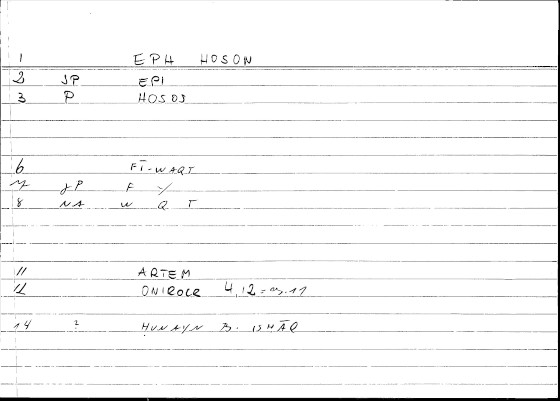 1 EPH HOSON
2 JP EPI
3 P HOSOS
6 FĪ-WAQT
7 JP F Y
8 NA W Q T
11 ARTEM
12 ONIROCR 4,12 =
14 ? HUNAYN B. ISHĀQ